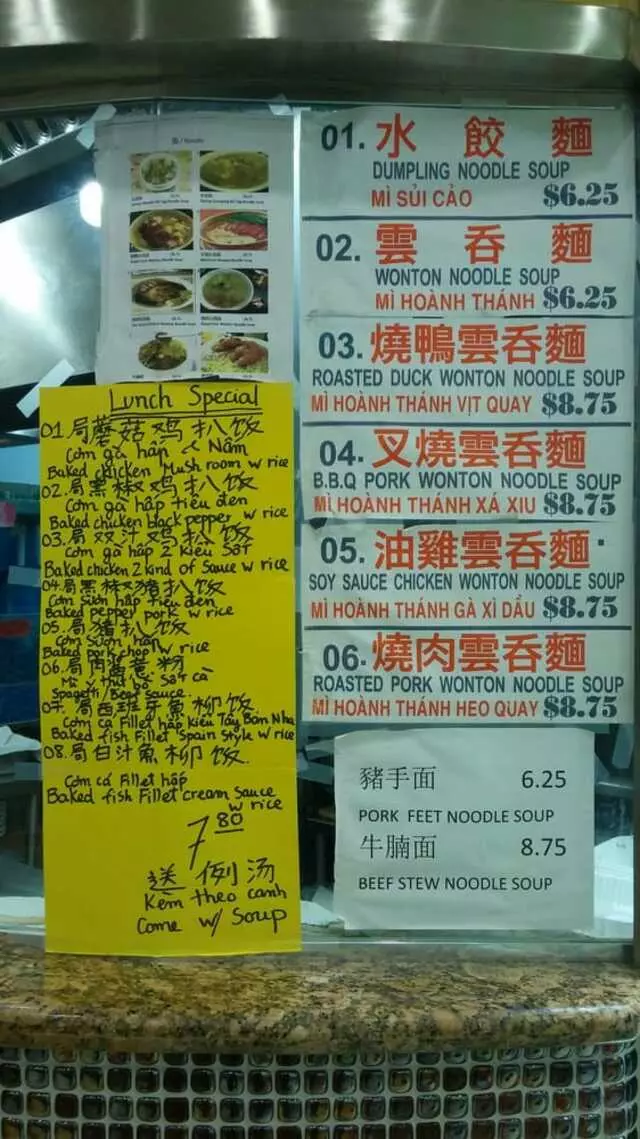 Lunch Special
01.局蘑菇鸡扒饭
Cơm gà hấp & Nấm
Baked chicken Mushroom w rice
02.局黑椒鸡扒饭
Cơm gà hấp tiêu đen
Baked chicken black pepper w rice
03.局双汁鸡扒饭
Cơm gà hấp 2 Kiểu Sốt
Baked chicken 2 kind of Sauce w rice
04.局黑椒猪扒饭
Cơm Sườn hấp tiêu đen
Baked pepper pork w rice
05.局猪扒饭
Cơm Sườn hấp
Baked pork chop w rice
06.局肉酱意粉
Mì Ý thịt bò Sốt cà
Spagetti/Beef Sauce
07.局西班牙魚柳饭
Cơm cá Fillet hấp Kiểu Tây Ban Nha
Baked fish Fillet Spain Style w rice
08.局白汁魚柳饭.
Cơm cá Fillet hấp
Baked fish Fillet cream Sauce
w rice
7 80
送例汤
Kèm theo canh
Come w/ Soup
01. 水餃麵
DUMPLING NOODLE SOUP
MÌ SỦI CẢO $6.25
02. 雲吞麵
WONTON NOODLE SOUP
MÌ HOÀNH THÁNH $6.25
03. 燒鴨雲吞麵
ROASTED DUCK WONTON NOODLE SOUP
MÌ HOÀNH THÁNH VỊT QUAY $8.75
04. 叉燒雲吞麵
B.B.Q PORK WONTON NOODLE SOUP
MÌ HOÀNH THÁNH XÁ XIU $8.75
05. 油雞雲吞麵
SOY SAUCE CHICKEN WONTON NOODLE SOUP
MÌ HOÀNH THÁNH GÀ XÌ DẦU $8.75
06. 燒肉雲吞麵
ROASTED PORK WONTON NOODLE SOUP
MÌ HOÀNH THÁNH HEO QUAY $8.75
豬手面 6.25
PORK FEET NOODLE SOUP
牛腩面 8.75
BEEF STEW NOODLE SOUP